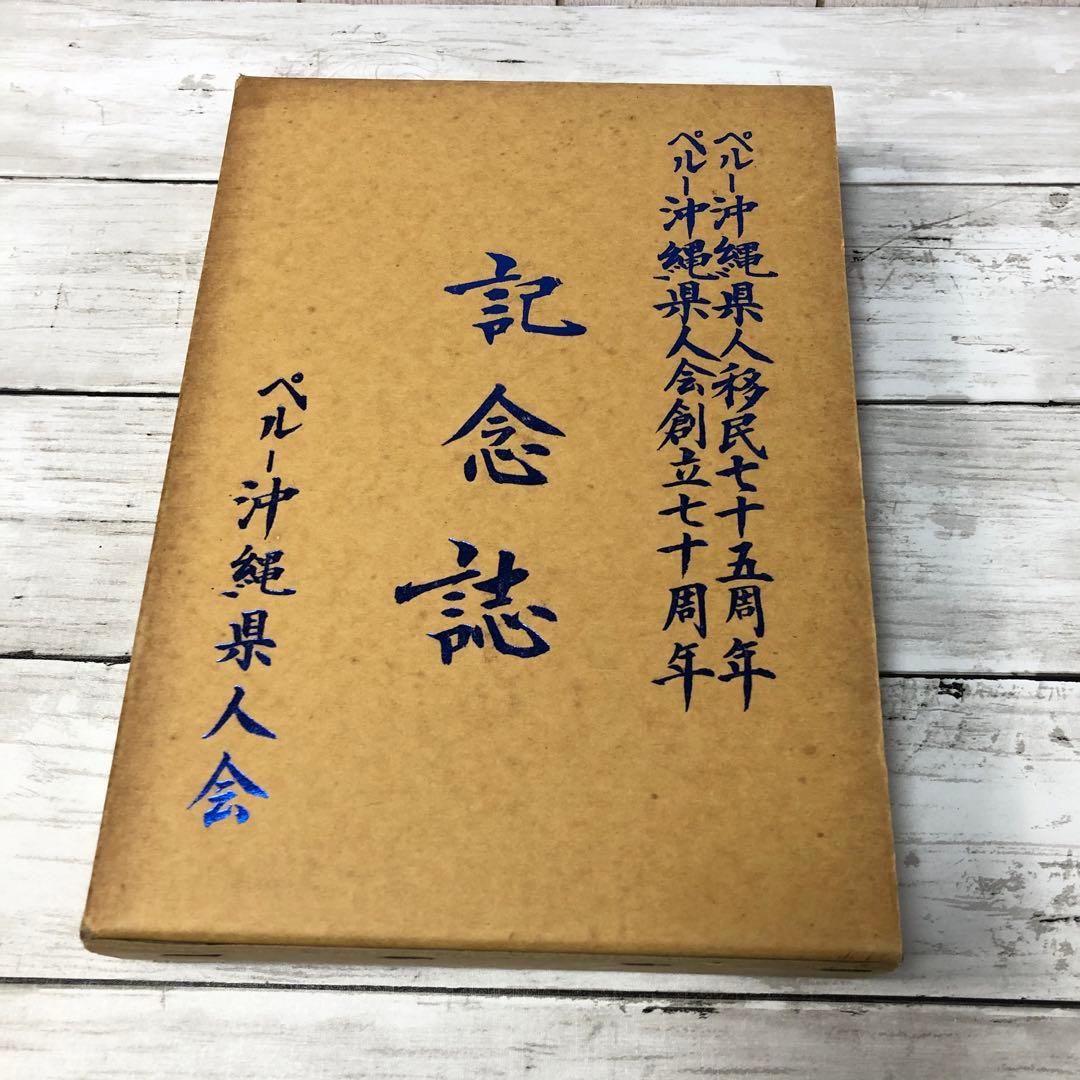 ペルー沖縄県人移民七十五周年
ペルー沖縄県人会創立七十周年
記念誌
ペルー沖縄県人会